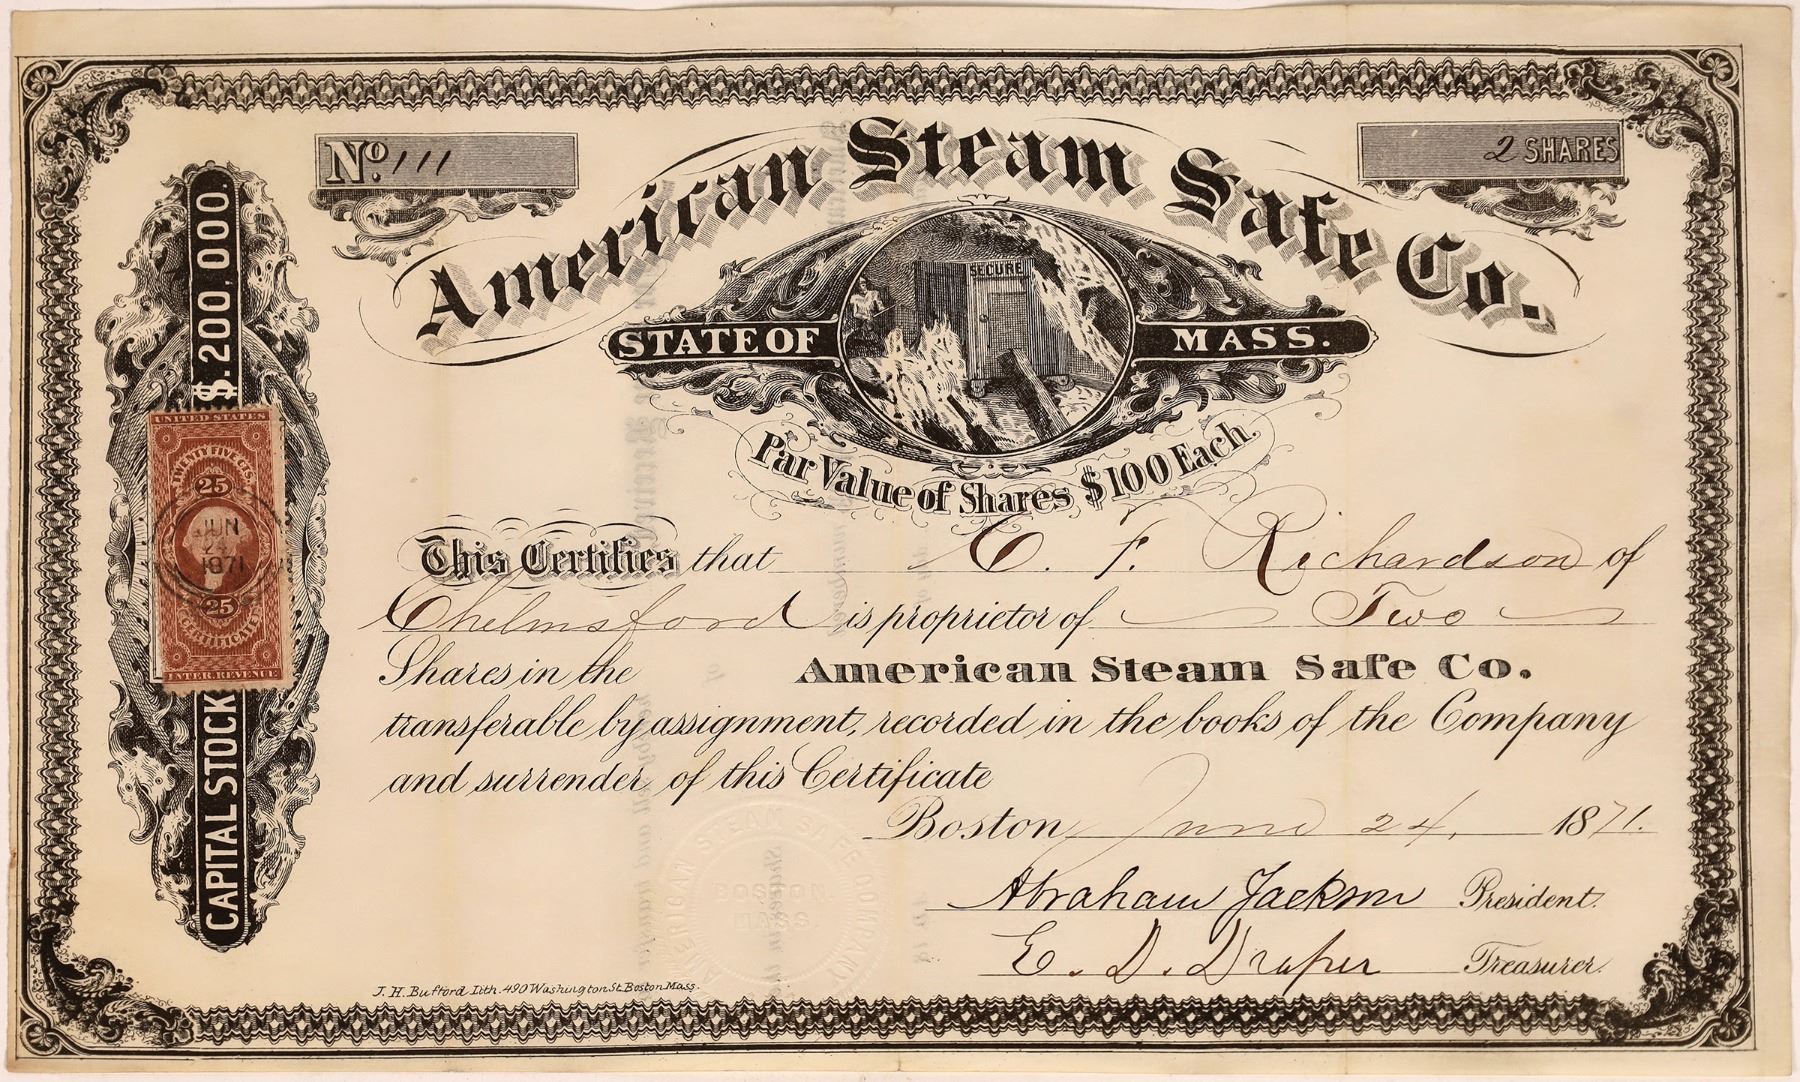 No. 111
2 SHARES
American Steam Safe Co.
SECURE
STATE OF MASS.
Par Value of Shares $100 Each.
CAPITAL STOCK $.200,000.
UNITED STATES
TWENTY FIVE CTS.
25
JUN
24
1871
25
CERTIFICATE
INTER. REVENUE
This Certifies that C. F. Richardson of
Chelmsford is proprietor of Two
Shares in the American Steam Safe Co.
transferable by assignment, recorded in the books of the Company
and surrender of this Certificate
Boston, June 24, 1871.
Abraham Jackson President.
E. D. Draper Treasurer.
AMERICAN STEAM SAFE COMPANY
BOSTON,
MASS
J. H. Bufford Lith. 490 Washington St. Boston Mass.